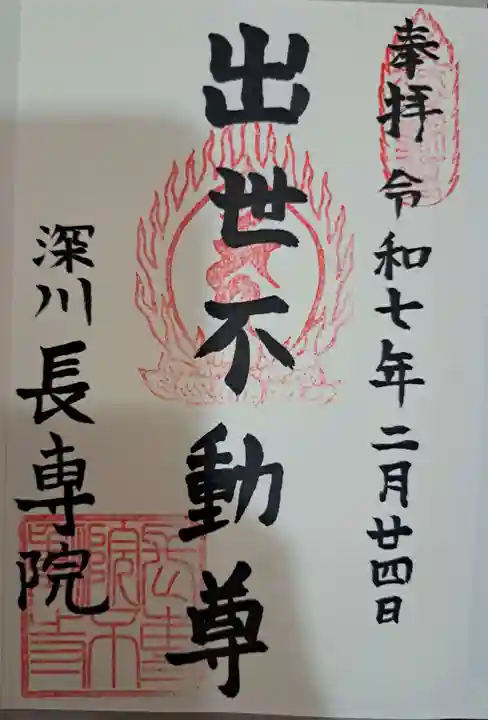 奉拝 令和七年二月廿四日
出世不動尊
深川 長専院